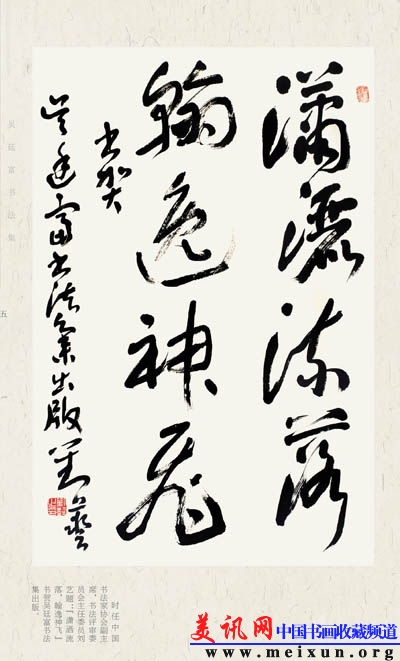 潇洒流落
翰逸神飞
书贺
吴廷富书法集出版 刘艺
吴廷富书法集
五
时任中国
书法家协会副主
席、书法评审委
员会主任委员刘
艺题:「潇洒流
落 翰逸神飞」
书贺吴廷富书法
集出版。
美讯网 中国书画收藏频道
www.meixun.org